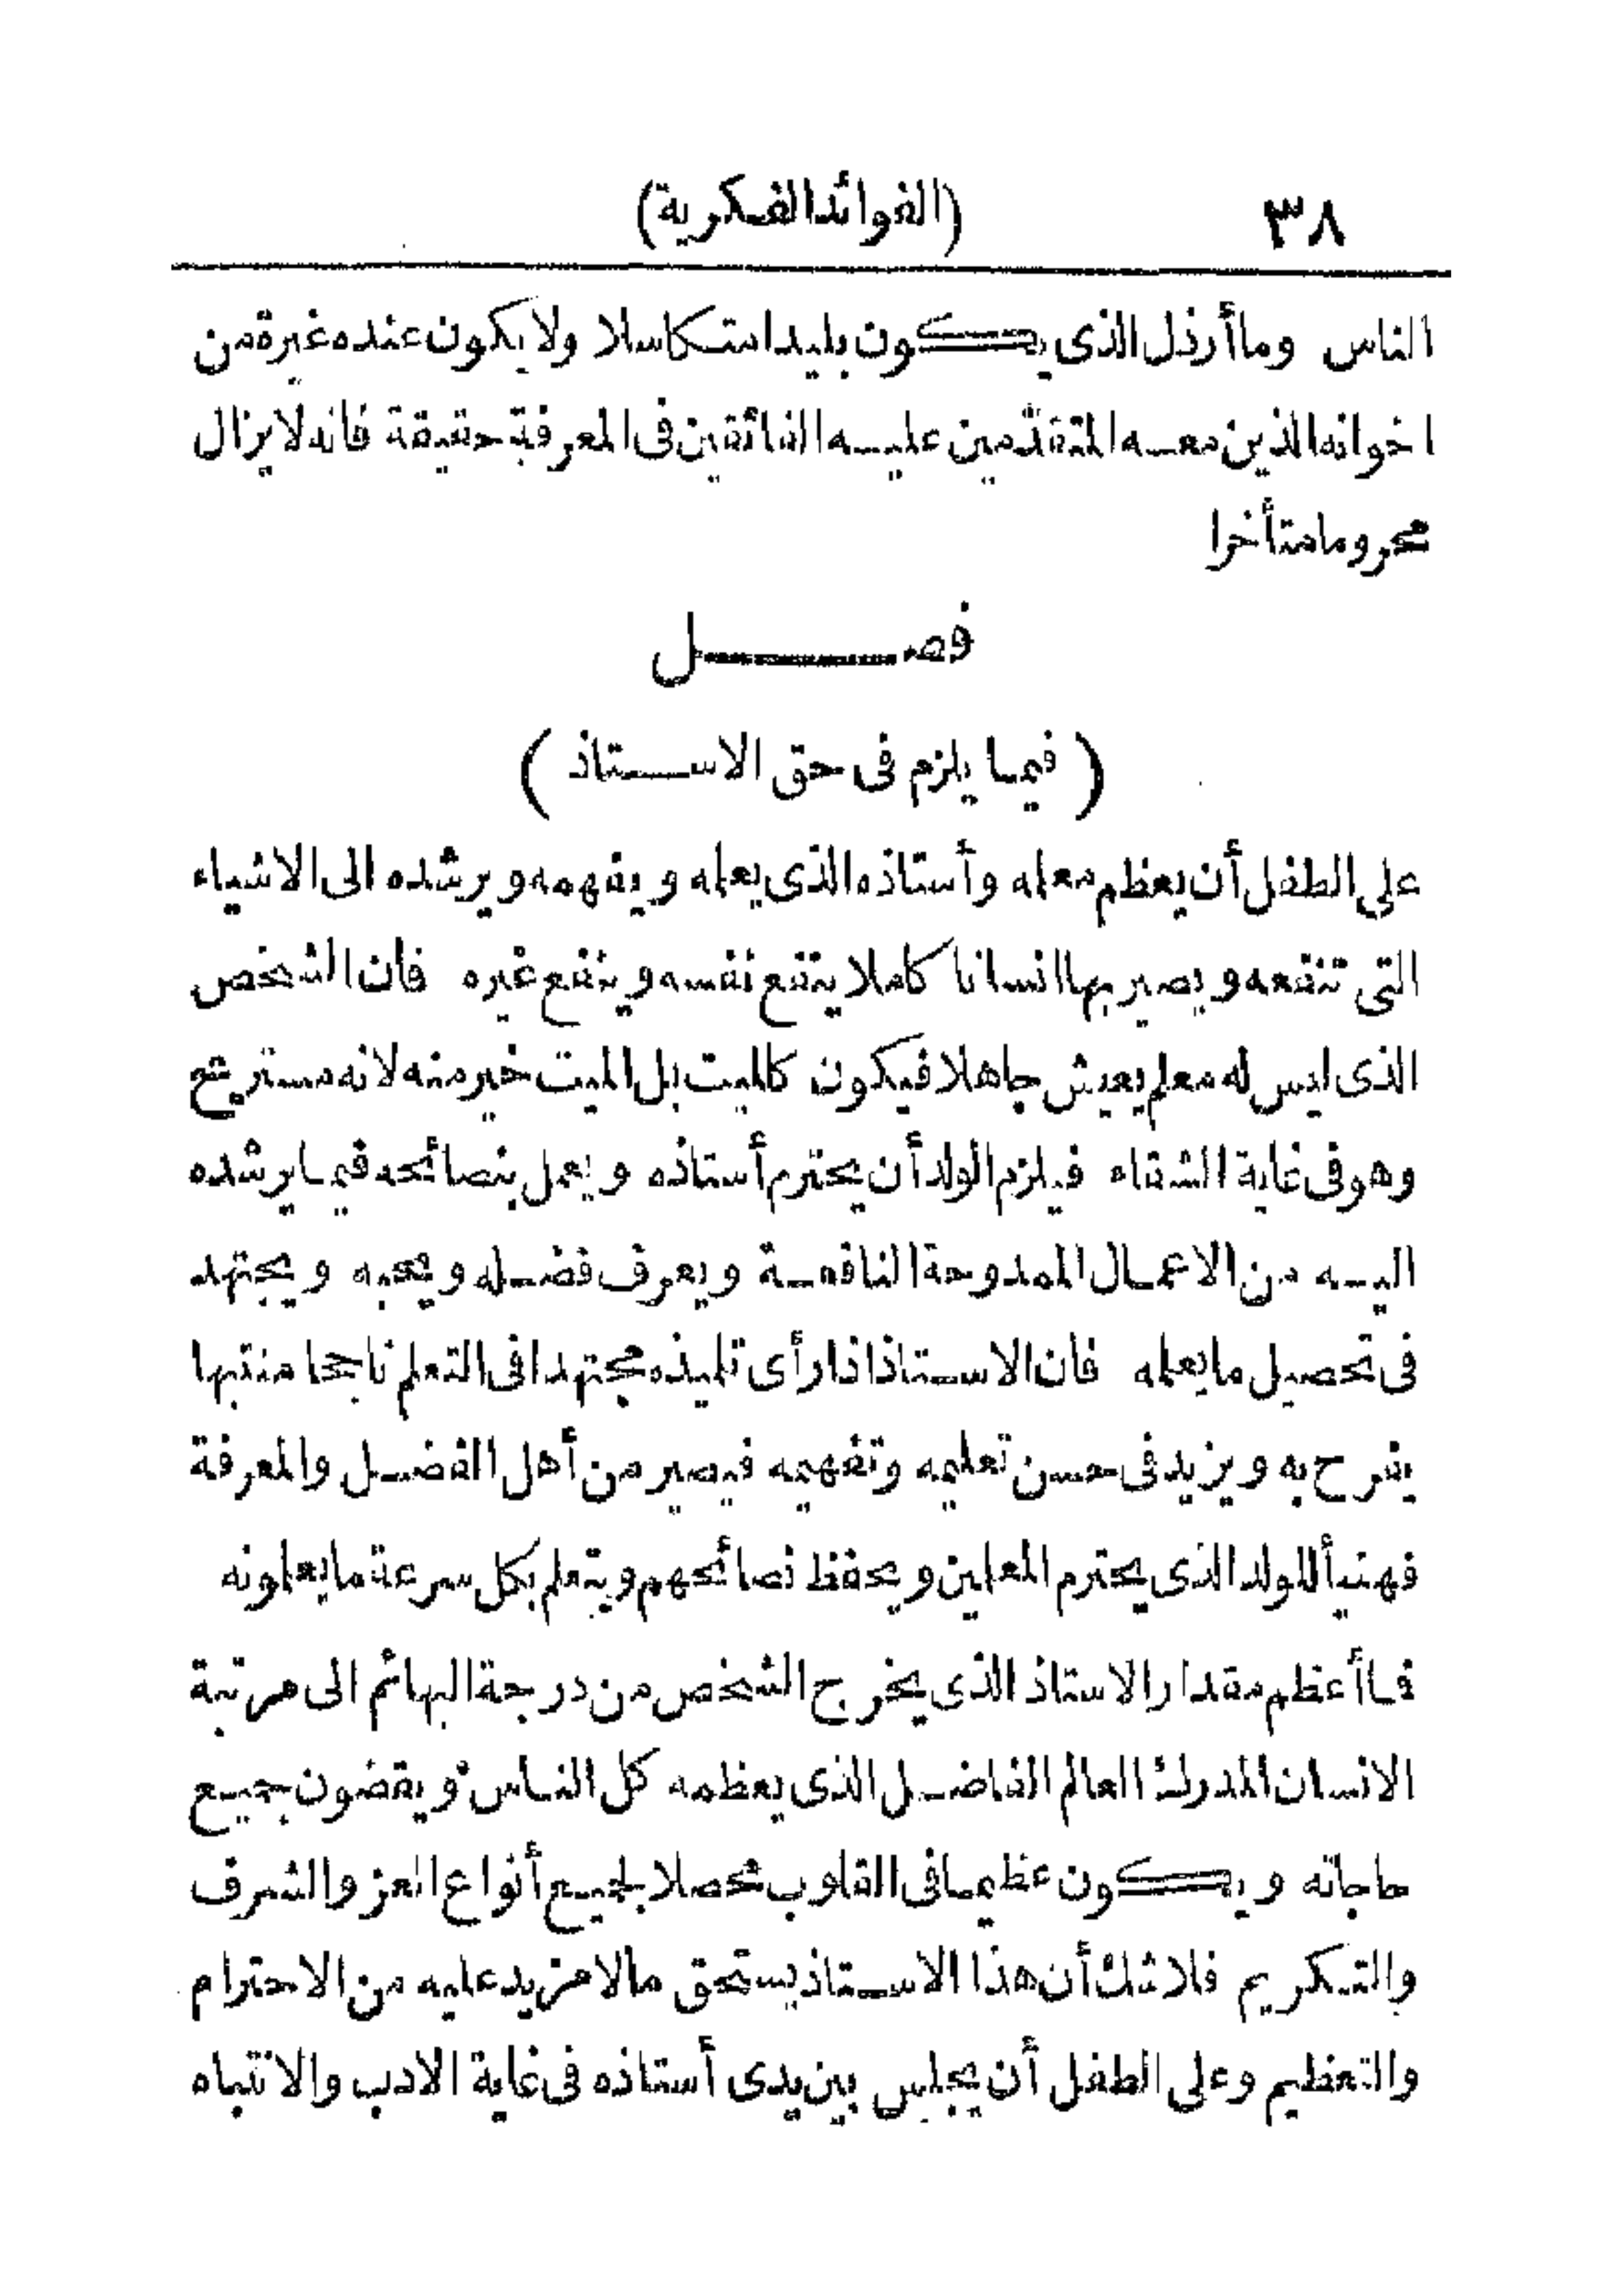 ٣٨ (الفوائد الفكرية)
الناس وما أرذل الذى يكون بليدا متكاسلا ولا يكون عنده غيرة من
اخوانه الذين معه المتقدّمين عليه الفائقين فى المعرفة حقيقة فانه لا يزال
محروما متأخرا
فصل
( فيما يلزم فى حق الاستاذ )
على الطفل أن يعظم معلمه وأستاذه الذى يعلمه ويفهمه ويرشده الى الاشياء
التى تنفعه ويصير بها انسانا كاملا ينفع نفسه وينفع غيره فان الشخص
الذى ليس له معلم يعيش جاهلا فيكون كالميت بل الميت خير منه لانه مستريح
وهو فى غاية الشقاء فيلزم الولد أن يحترم أستاذه ويعمل بنصائحه فيما يرشده
اليه من الاعمال الممدوحة النافعة ويعرف فضله ويحبه ويجتهد
فى تحصيل ما يعلمه فان الاستاذ اذا رأى تلميذه مجتهدا فى التعلم ناجحا منتبها
يفرح به ويزيد فى حسن تعليمه وتفهيمه فيصير من أهل الفضل والمعرفة
فهنيأ للولد الذى يحترم المعلمين ويحفظ نصائحهم ويتعلم بكل سرعة ما يعلمونه
فما أعظم مقدار الاستاذ الذى يخرج الشخص من درجة البهائم الى مرتبة
الانسان المدرك العالم الفاضل الذى يعظمه كل الناس ويقضون جميع
حاجاته ويكون عظيما فى القلوب محصلا لجميع أنواع العز والشرف
والتكريم فلا شك أن هذا الاستاذ يستحق ما لا مزيد عليه من الاحترام
والتعظيم وعلى الطفل أن يجلس بين يدى أستاذه فى غاية الادب والانتباه